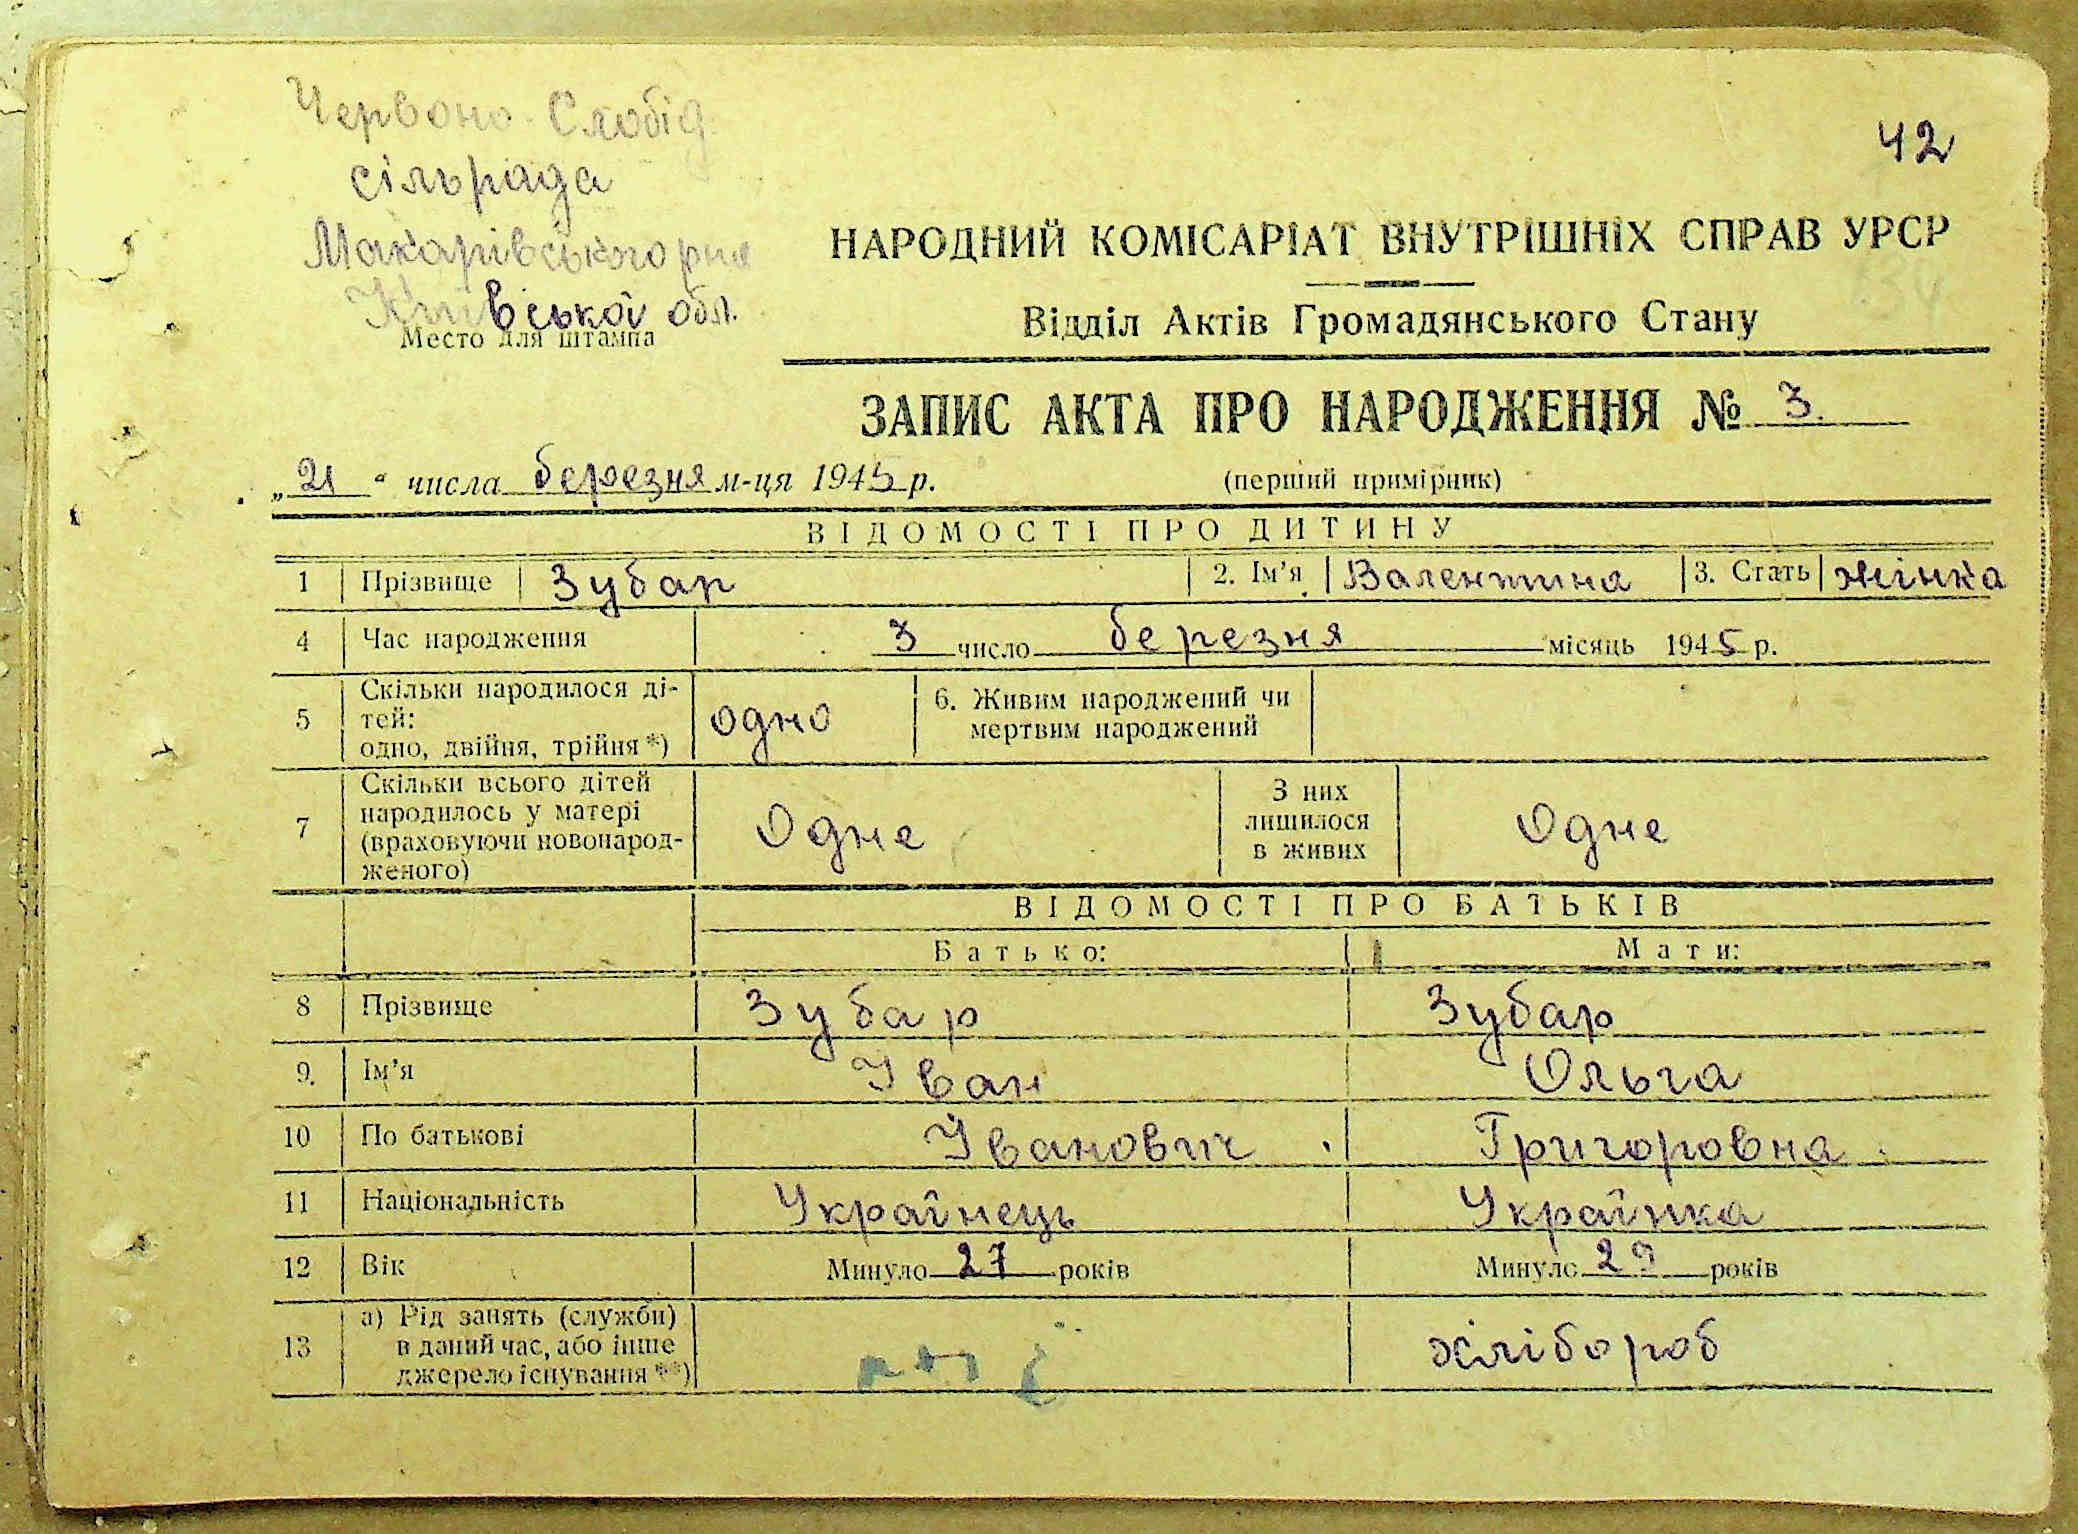 Червоно-Слобід
сільрада
Макарівського р-на
Київської обл.
Место для штампа
42
НАРОДНИЙ КОМІСАРІАТ ВНУТРІШНІХ СПРАВ УРСР
Відділ Актів Громадянського Стану
ЗАПИС АКТА ПРО НАРОДЖЕННЯ № 3.
„21“ числа березня м-ця 1945 р. (перший примірник)
ВІДОМОСТІ ПРО ДИТИНУ
1 Прізвище Зубар 2. Ім'я Валентина 3. Стать жінка
4 Час народження 3 число березня місяць 1945 р.
5 Скільки народилося ді-
тей:
одно, двійня, трійня*) одно 6. Живим народжений чи
мертвим народжений
7 Скільки всього дітей
народилось у матері
(враховуючи новонарод-
женого) Одне З них
лишилося
в живих Одне
ВІДОМОСТІ ПРО БАТЬКІВ
Батько: Мати:
8 Прізвище Зубар Зубар
9. Ім'я Іван Ольга
10 По батькові Іванович Григоровна
11 Національність Українець Українка
12 Вік Минуло 27 років Минуло 29 років
13 а) Рід занять (служби)
в даний час, або інше
джерело існування**) хлібороб